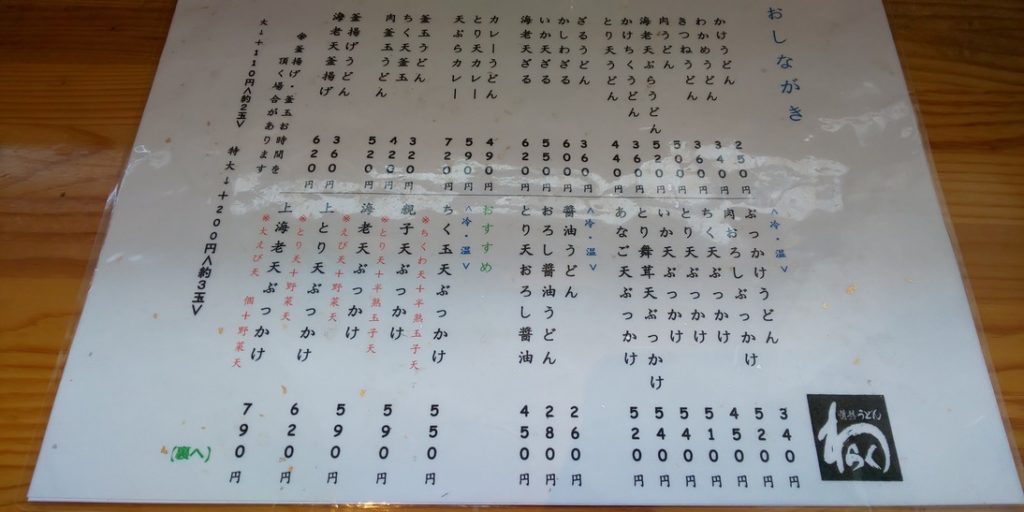 おしながき
かけうどん 250円
わかめうどん 340円
きつねうどん 360円
肉うどん 500円
海老天ぷらうどん 520円
かけちくうどん 360円
とり天うどん 440円
ざるうどん 360円
かしわざる 600円
いか天ざる 550円
海老天ざる 620円
カレーうどん 490円
とり天カレー 590円
天ぷらカレー 720円
釜玉うどん 320円
ちく天釜玉 420円
肉釜玉うどん 520円
釜揚げうどん 360円
海老天釜揚げ 620円
※釜揚げ・釜玉お時間を
頂く場合があります
大↓+110円<約2玉>
特大↓+200円<約3玉>
<冷・温>
ぶっかけうどん 340円
肉おろしぶっかけ 520円
ちく天ぶっかけ 450円
とり天ぶっかけ 510円
いか天ぶっかけ 540円
とり舞茸天ぶっかけ 540円
あなご天ぶっかけ 520円
<冷・温>
醤油うどん 260円
おろし醤油うどん 280円
とり天おろし醤油 450円
おすすめ
<冷・温>
ちく玉天ぶっかけ 550円
※ちくわ天+半熟玉子天
親子天ぶっかけ 590円
※とり天+半熟玉子天
海老天ぶっかけ 590円
※えび天+野菜天
上とり天ぶっかけ 620円
※とり天+野菜天
上海老天ぶっかけ 790円
※大えび天 個+野菜天
(裏へ)
うどん
わらく